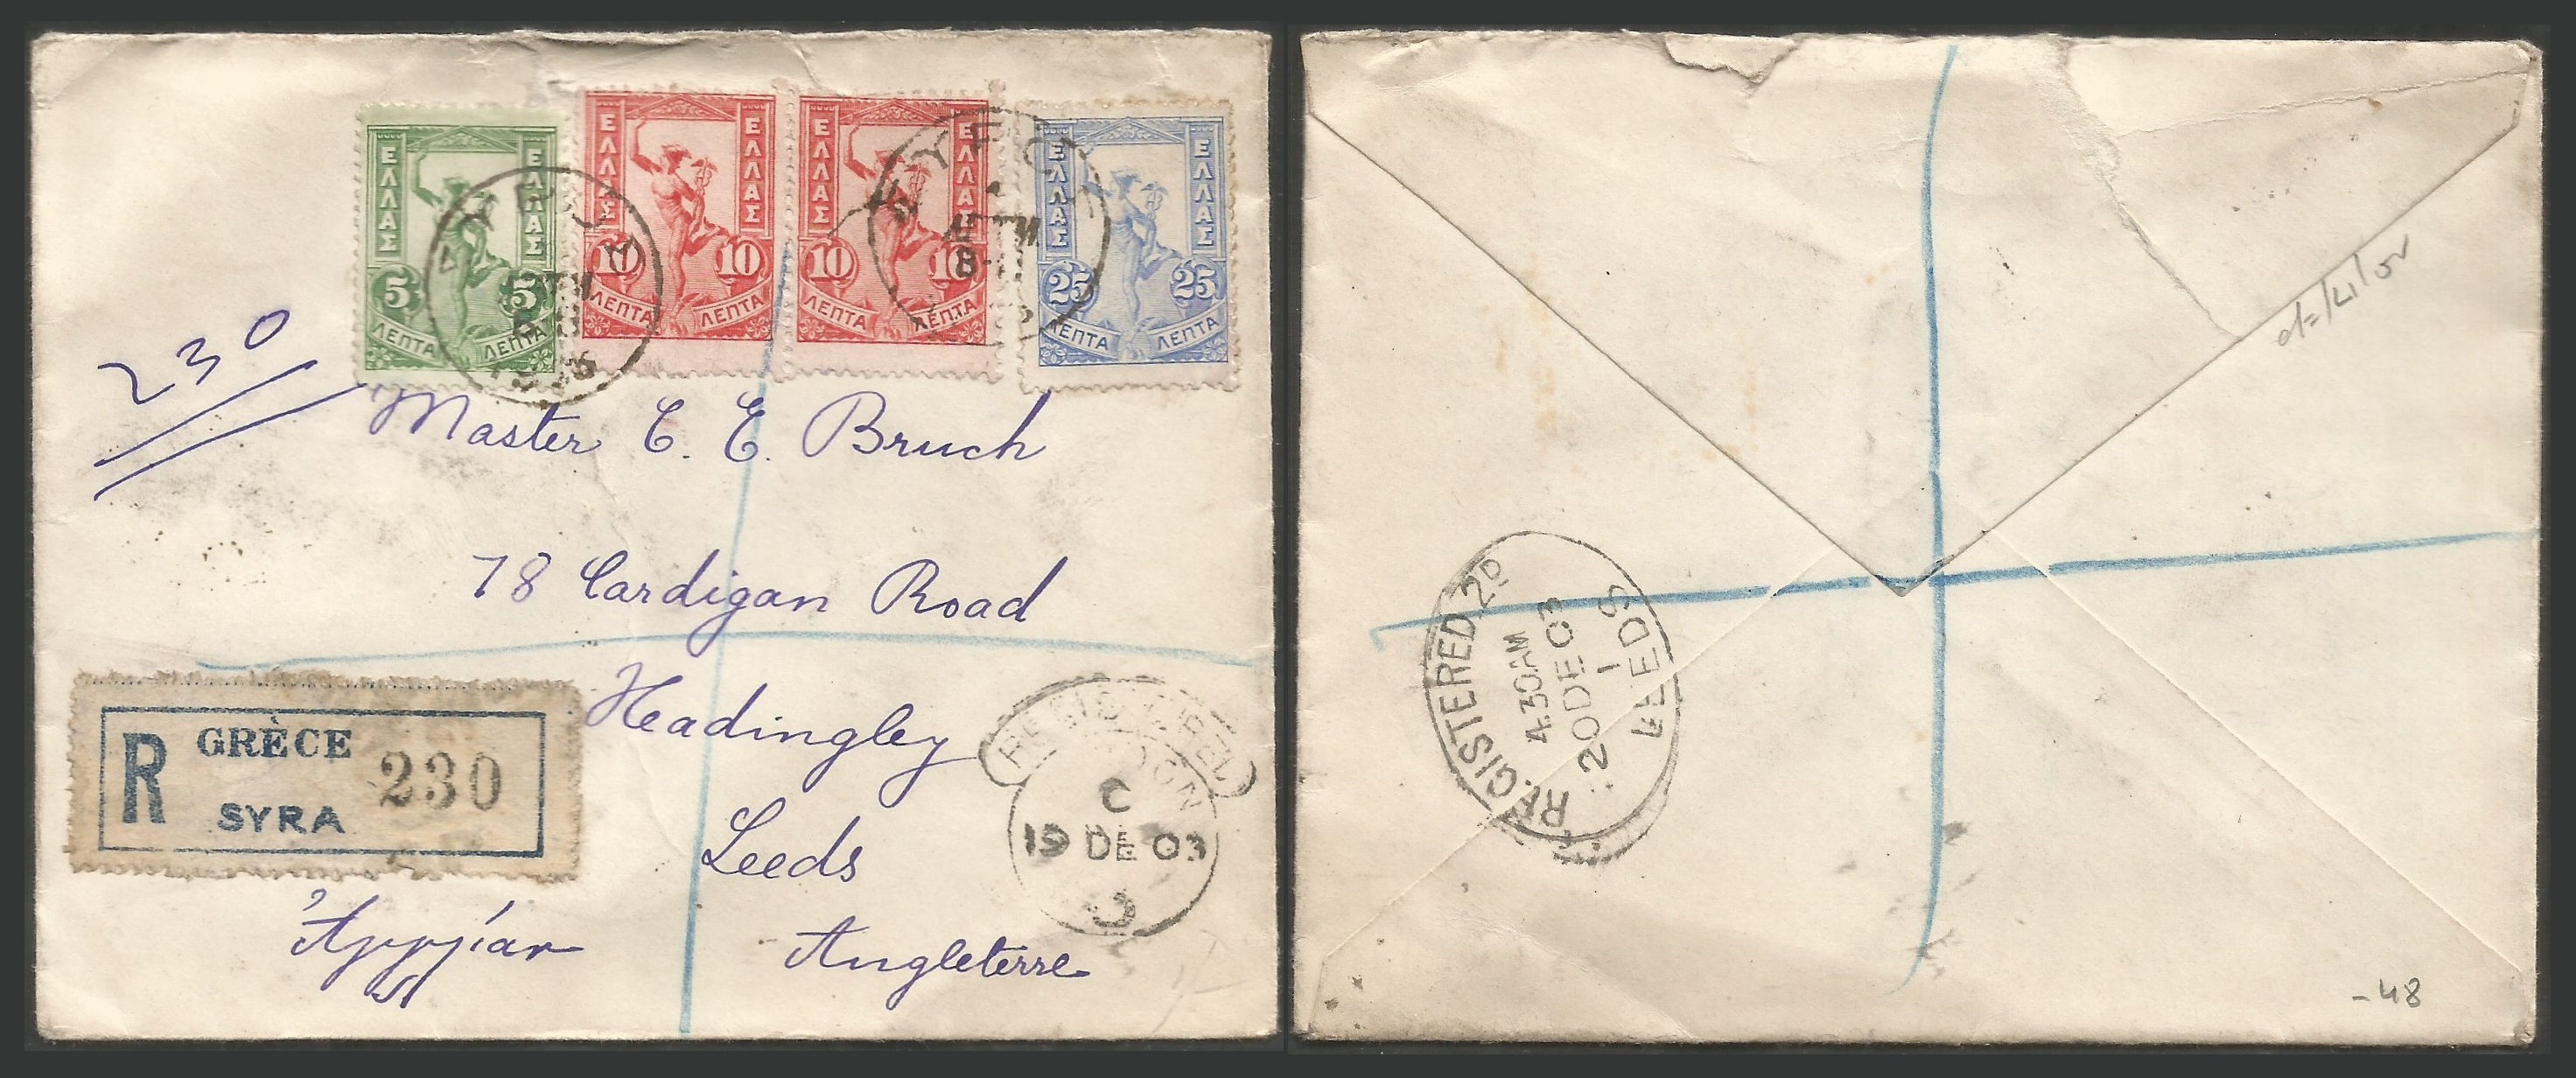 ΕΛΛΑΣ ΕΛΛΑΣ
5 5
ΛΕΠΤΑ ΛΕΠΤΑ
ΕΛΛΑΣ ΕΛΛΑΣ
10 10
ΛΕΠΤΑ ΛΕΠΤΑ
ΕΛΛΑΣ ΕΛΛΑΣ
10 10
ΛΕΠΤΑ ΛΕΠΤΑ
ΕΛΛΑΣ ΕΛΛΑΣ
25 25
ΛΕΠΤΑ ΛΕΠΤΑ
230
Master C. E. Bruch
78 Cardigan Road
Headingley
Leeds
Angleterre
R GRÈCE 230
SYRA
REGISTERED
LONDON
C
19 DE 03
REGISTERED 2D
4.30AM
20 DE 03
1
LEEDS
-48